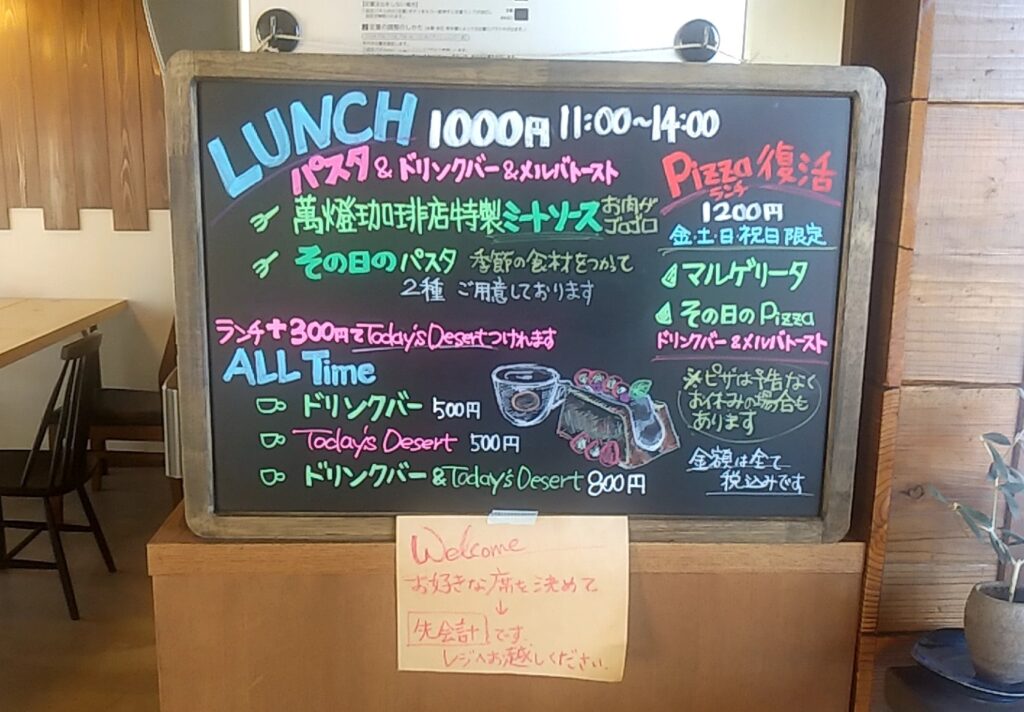 LUNCH 1000円 11:00~14:00
パスタ & ドリンクバー & メルバトースト
萬燈珈琲店特製ミートソース お肉がゴロゴロ
その日のパスタ 季節の食材をつかって
2種 ご用意しております
ランチ+300円でToday's Desertつけれます
Pizza 復活
ランチ
1200円
金・土・日・祝日限定
マルゲリータ
その日のPizza
ドリンクバー&メルバトースト
※ピザは予告なく
お休みの場合も
あります
金額は全て
税込みです
ALL Time
ドリンクバー 500円
Today's Desert 500円
ドリンクバー&Today's Desert 800円
Welcome
お好きな席を決めて
↓
先会計です
レジへお越しください。